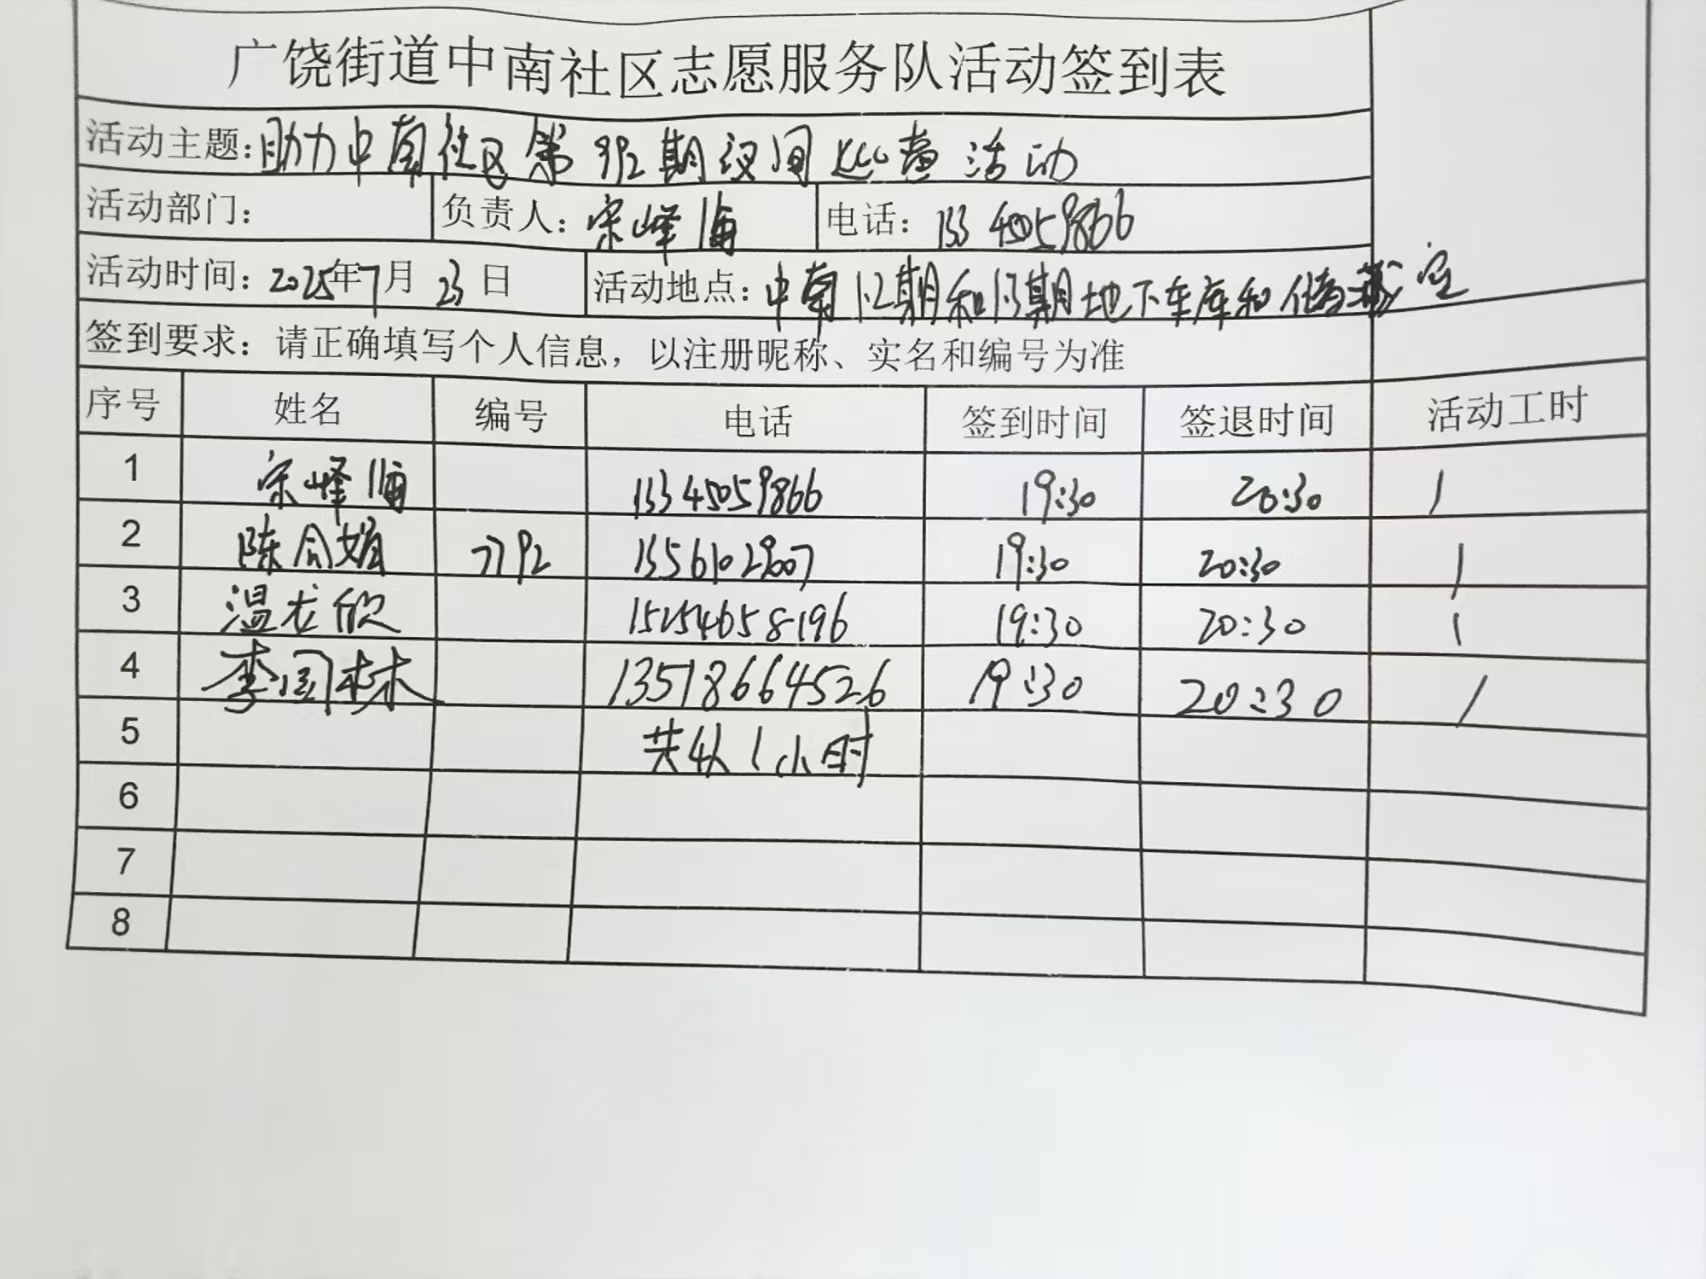 广饶街道中南社区志愿服务队活动签到表
活动主题:助力中南社区第392期夜间巡查活动
活动部门: 负责人:宋峰海 电话:13345059866
活动时间:2025年7月23日 活动地点:中南1.2期和1.3期地下车库和储藏室
签到要求:请正确填写个人信息,以注册昵称、实名和编号为准
序号 姓名 编号 电话 签到时间 签退时间 活动工时
1 宋峰海 13345059866 19:30 20:30 1
2 陈会娟 7792 19:30 20:30 1
3 温龙欣 15254658196 19:30 20:30 1
4 李国林 13518664526 19:30 20:30 1
5 共4人1小时
6
7
8